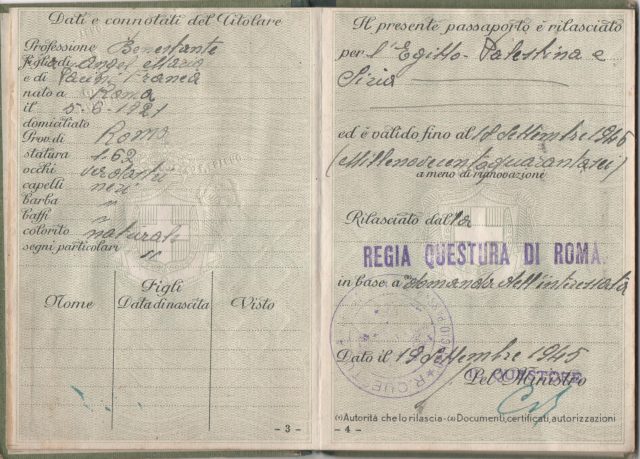 Dati e connotati del Titolare
Professione Benestante
Figlia di Angel Mario
e di Pacini Franca
nato a Roma
il 5-6-1921
domiciliato
Prov. di Roma
statura 1.62
occhi verdastri
capelli neri
barba "
baffi "
colorito naturale
segni particolari "
Figli
Nome Data di nascita Visto
- 3 -
Il presente passaporto è rilasciato
per l'Egitto - Palestina e
Siria
ed è valido fino al 18 Settembre 1946
(Millenovecentoquarantasei)
a meno di rinnovazione
Rilasciato dal la
REGIA QUESTURA DI ROMA.
in base a (2) domanda dell'interessata
Dato il 19 Settembre 1945
Pel Ministro
IL QUESTORE
(1) Autorità che lo rilascia - (2) Documenti, certificati, autorizzazioni
- 4 -